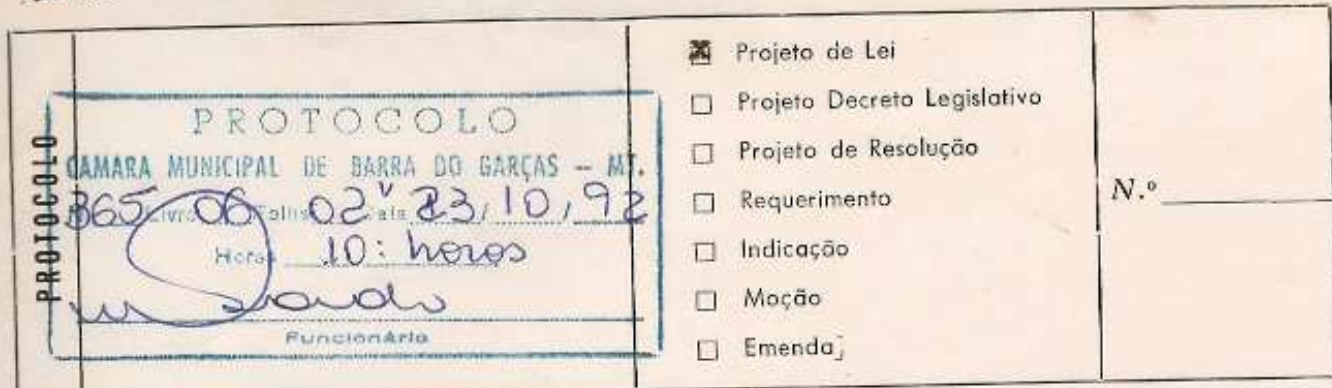 PROTOCOLO
PROTOCOLO
CAMARA MUNICIPAL DE BARRA DO GARÇAS — MT.
865 Livro 06 Folha 02v Data 23/10/92
Horas 10: horas
Funcionário
Projeto de Lei
Projeto Decreto Legislativo
Projeto de Resolução
Requerimento
Indicação
Moção
Emenda
N.º